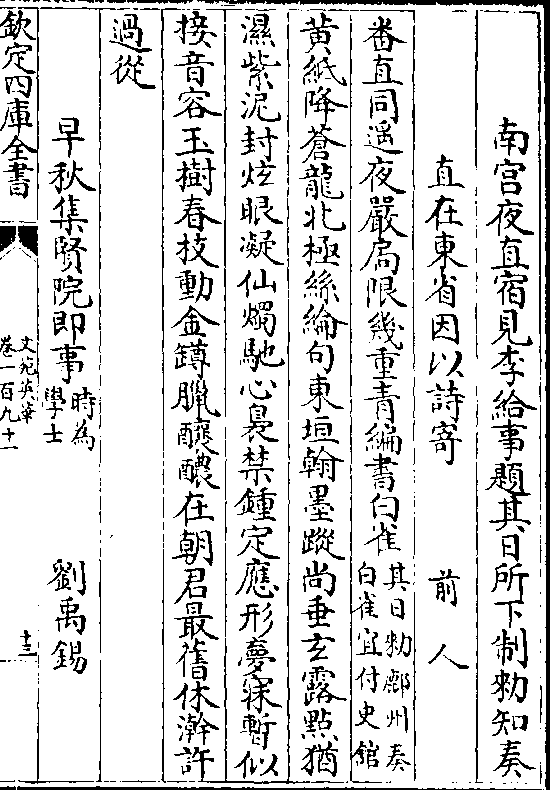 南宮夜直宿見李給事題其日所下制勑知奏
直在東省因以詩寄　前人
番直同遥夜嚴扃限幾重青編書白雀其日勑鄜州奏白雀宜付史館
黄紙降蒼龍北極絲綸句東垣翰墨蹤尚垂玄露點猶
濕紫泥封炫眼凝仙燭馳心裊禁鍾定應形夢寐暫似
接音容玉樹春枝動金罇臘醸醲在朝君最舊休澣許
過從
早秋集賢院即事時為學士　劉禹錫
欽定四庫全書
文苑英華
卷一百九十一
十三